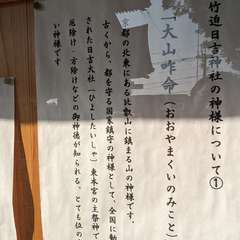 竹迫日吉神社の神様について①
「大山咋命（おおやまくいのみこと）
京都の北東にある比叡山に鎮まる山の神様です。
古くから、都を守る国家鎮守の神様として、全国に勧
された日吉大社（ひよしたいしゃ）東本宮の主祭神で
厄除け・方除けなどの御神徳が知られる、とても位の
い神様です。